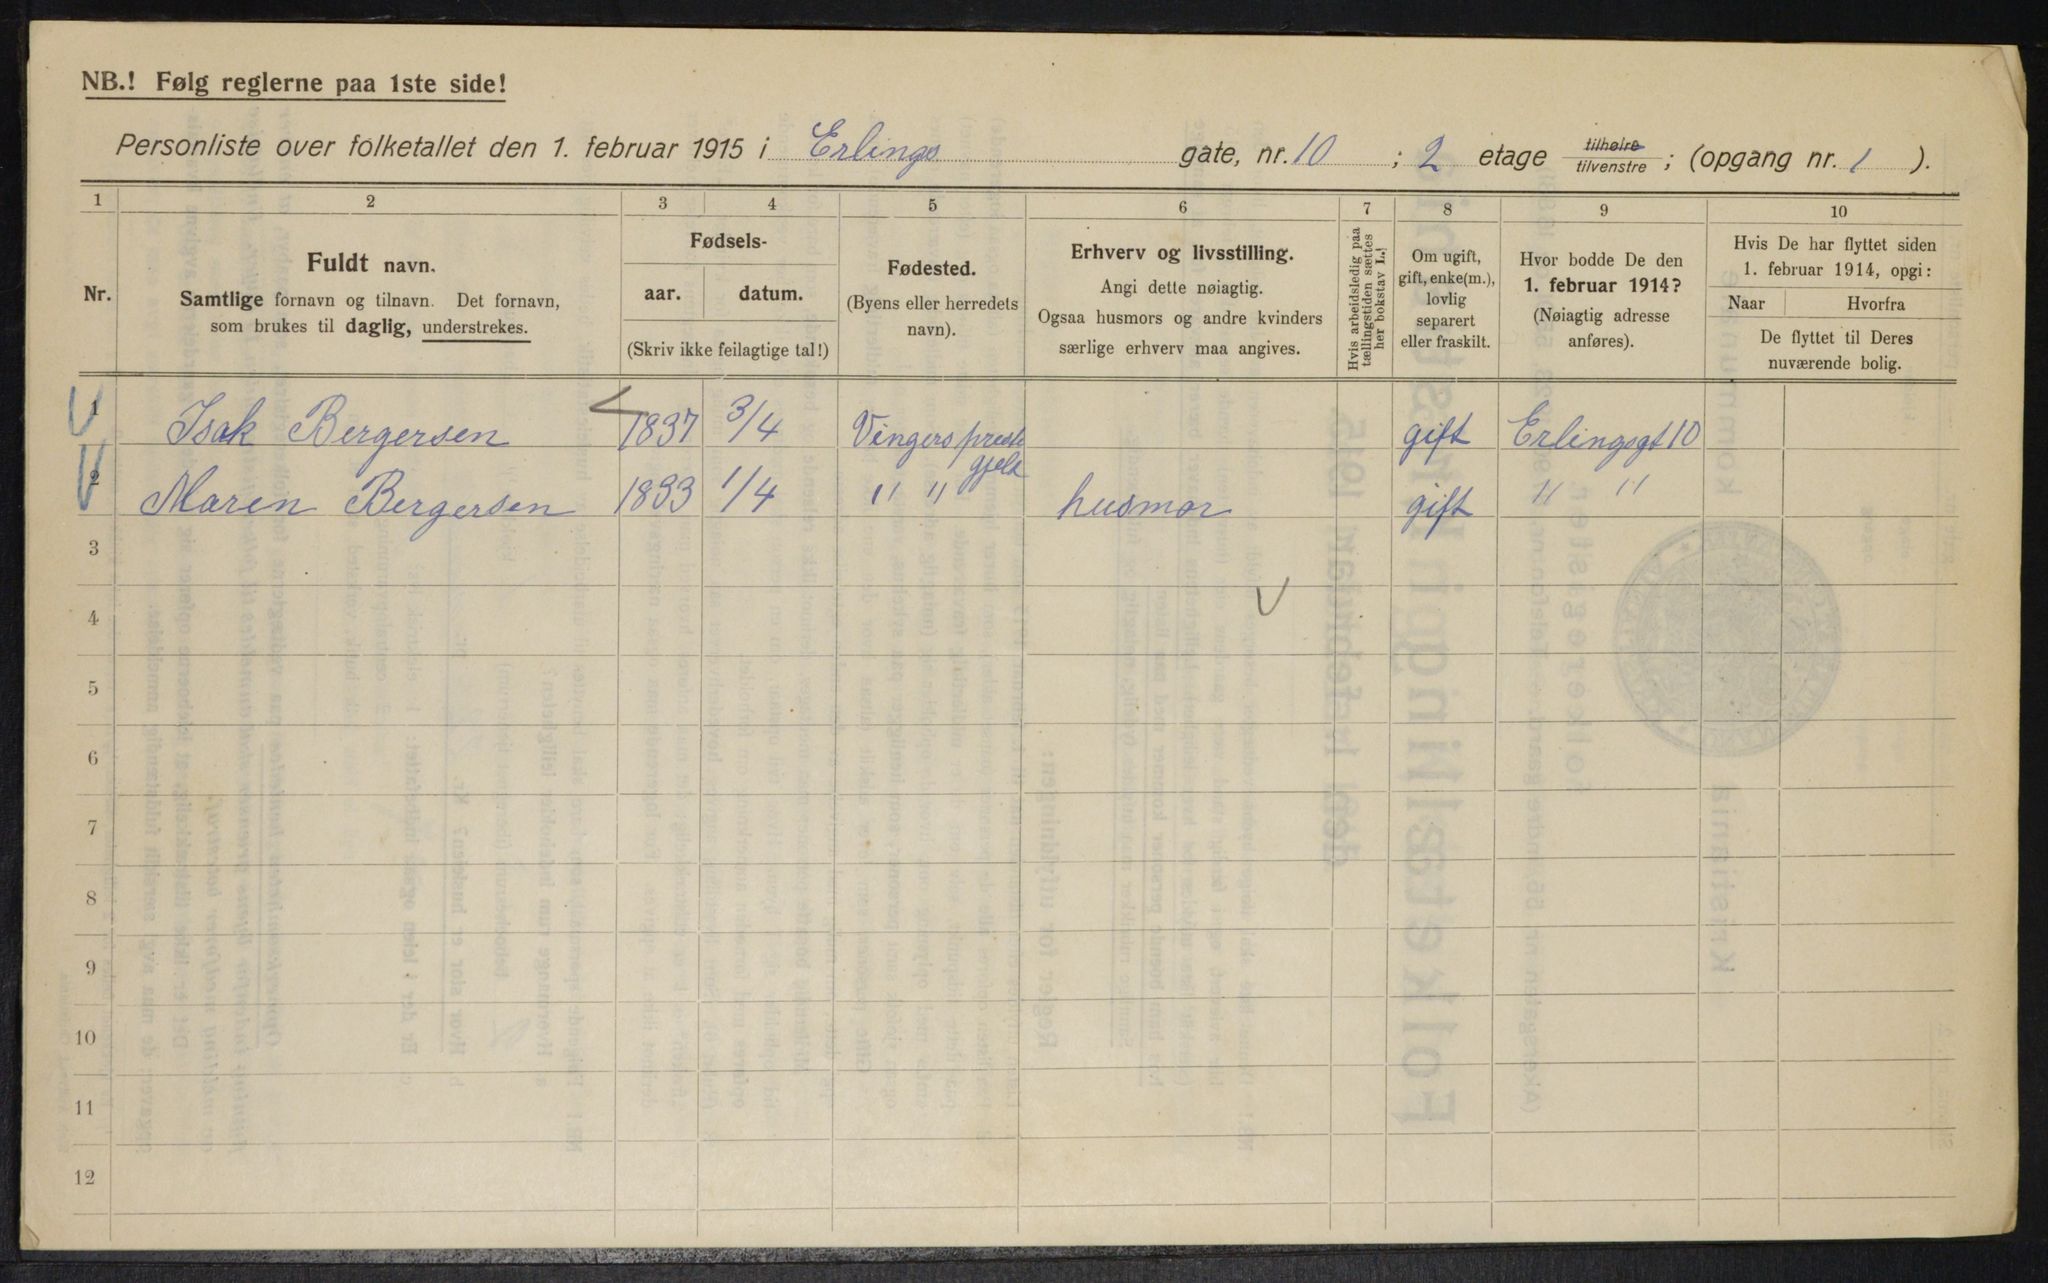 NB.! Følg reglerne paa 1ste side!
Personliste over folketallet den 1. februar 1915 i Erlings gate, nr. 10 ; 2 etage tilhøire tilvenstre ; (opgang nr. 1 ).
1 2 3 4 5 6 7 8 9 10
Nr.
Fuldt navn.
Samtlige fornavn og tilnavn. Det fornavn,
som brukes til daglig, understrekes.
Fødsels-
aar. datum.
(Skriv ikke feilagtige tal!)
Fødested.
(Byens eller herredets
navn).
Erhverv og livsstilling.
Angi dette nøiagtig.
Ogsaa husmors og andre kvinders
særlige erhverv maa angives.
Hvis arbeidsledig paa
tællingstiden sættes
her bokstav L.!
Om ugift,
gift, enke(m.),
lovlig
separert
eller fraskilt.
Hvor bodde De den
1. februar 1914?
(Nøiagtig adresse
anføres).
Hvis De har flyttet siden
1. februar 1914, opgi:
Naar Hvorfra
De flyttet til Deres
nuværende bolig.
1 Isak Bergersen 1837 3/4 Vingers preste gjeld gift Erlingsgt 10
2 Maren Bergersen 1833 1/4 " " husmor gift " "
3
4
5
6
7
8
9
10
11
12